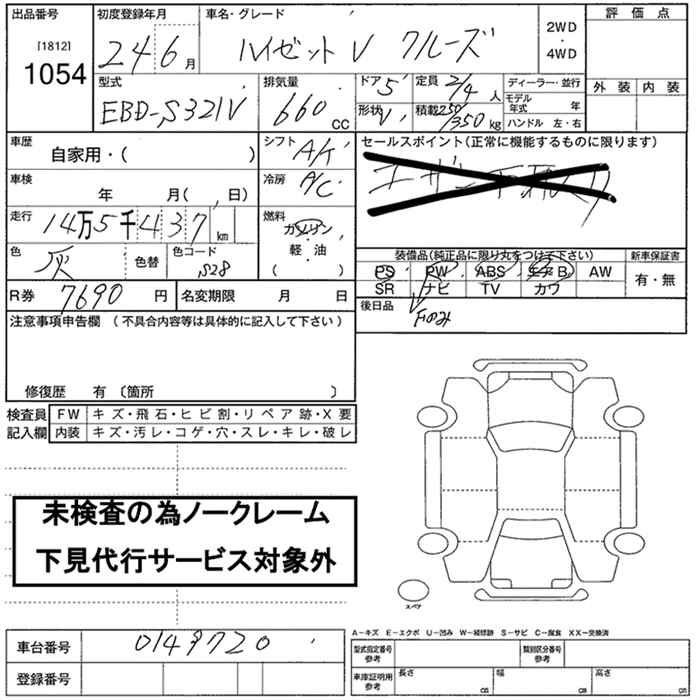 出品番号
[1812]
1054
初度登録年月
24 6月
車名・グレード
ハイゼット V クルーズ
2WD
・
4WD
評価点
外装 内装
型式
EBD-S321V
排気量
660 CC
ドア 5
形状 V
定員 2/4 人
積載 250/350 kg
ディーラー・並行
モデル年式 年
ハンドル 左・右
車歴
自家用・( )
シフト
A/K
セールスポイント(正常に機能するものに限ります)
車検
年 月( , 日)
冷房
A/C
走行
14万5千437 km
燃料
ガソリン
・
軽・油
( )
色
灰
色替
色コード
S28
装備品(純正品に限り丸をつけて下さい)
PS PW ABS エアB AW
SR ナビ TV カワ
新車保証書
有・無
R券 7690 円
名変期限 月 日
後日品
Fのみ
注意事項申告欄 (不具合内容等は具体的に記入して下さい)
修復歴 有 〔箇所 〕
検査員
記入欄
FW キズ・飛石・ヒビ割・リペア跡・X要
内装 キズ・汚レ・コゲ・穴・スレ・キレ・破レ
未検査の為ノークレーム
下見代行サービス対象外
スペア
車台番号 0149720
登録番号
A-キズ E-エクボ U-凹み W-補修跡 S-サビ C-腐食 XX-交換済
型式指定番号
参考
類別区分番号
参考
車庫証明用
参考
長さ cm
幅 cm
高さ cm